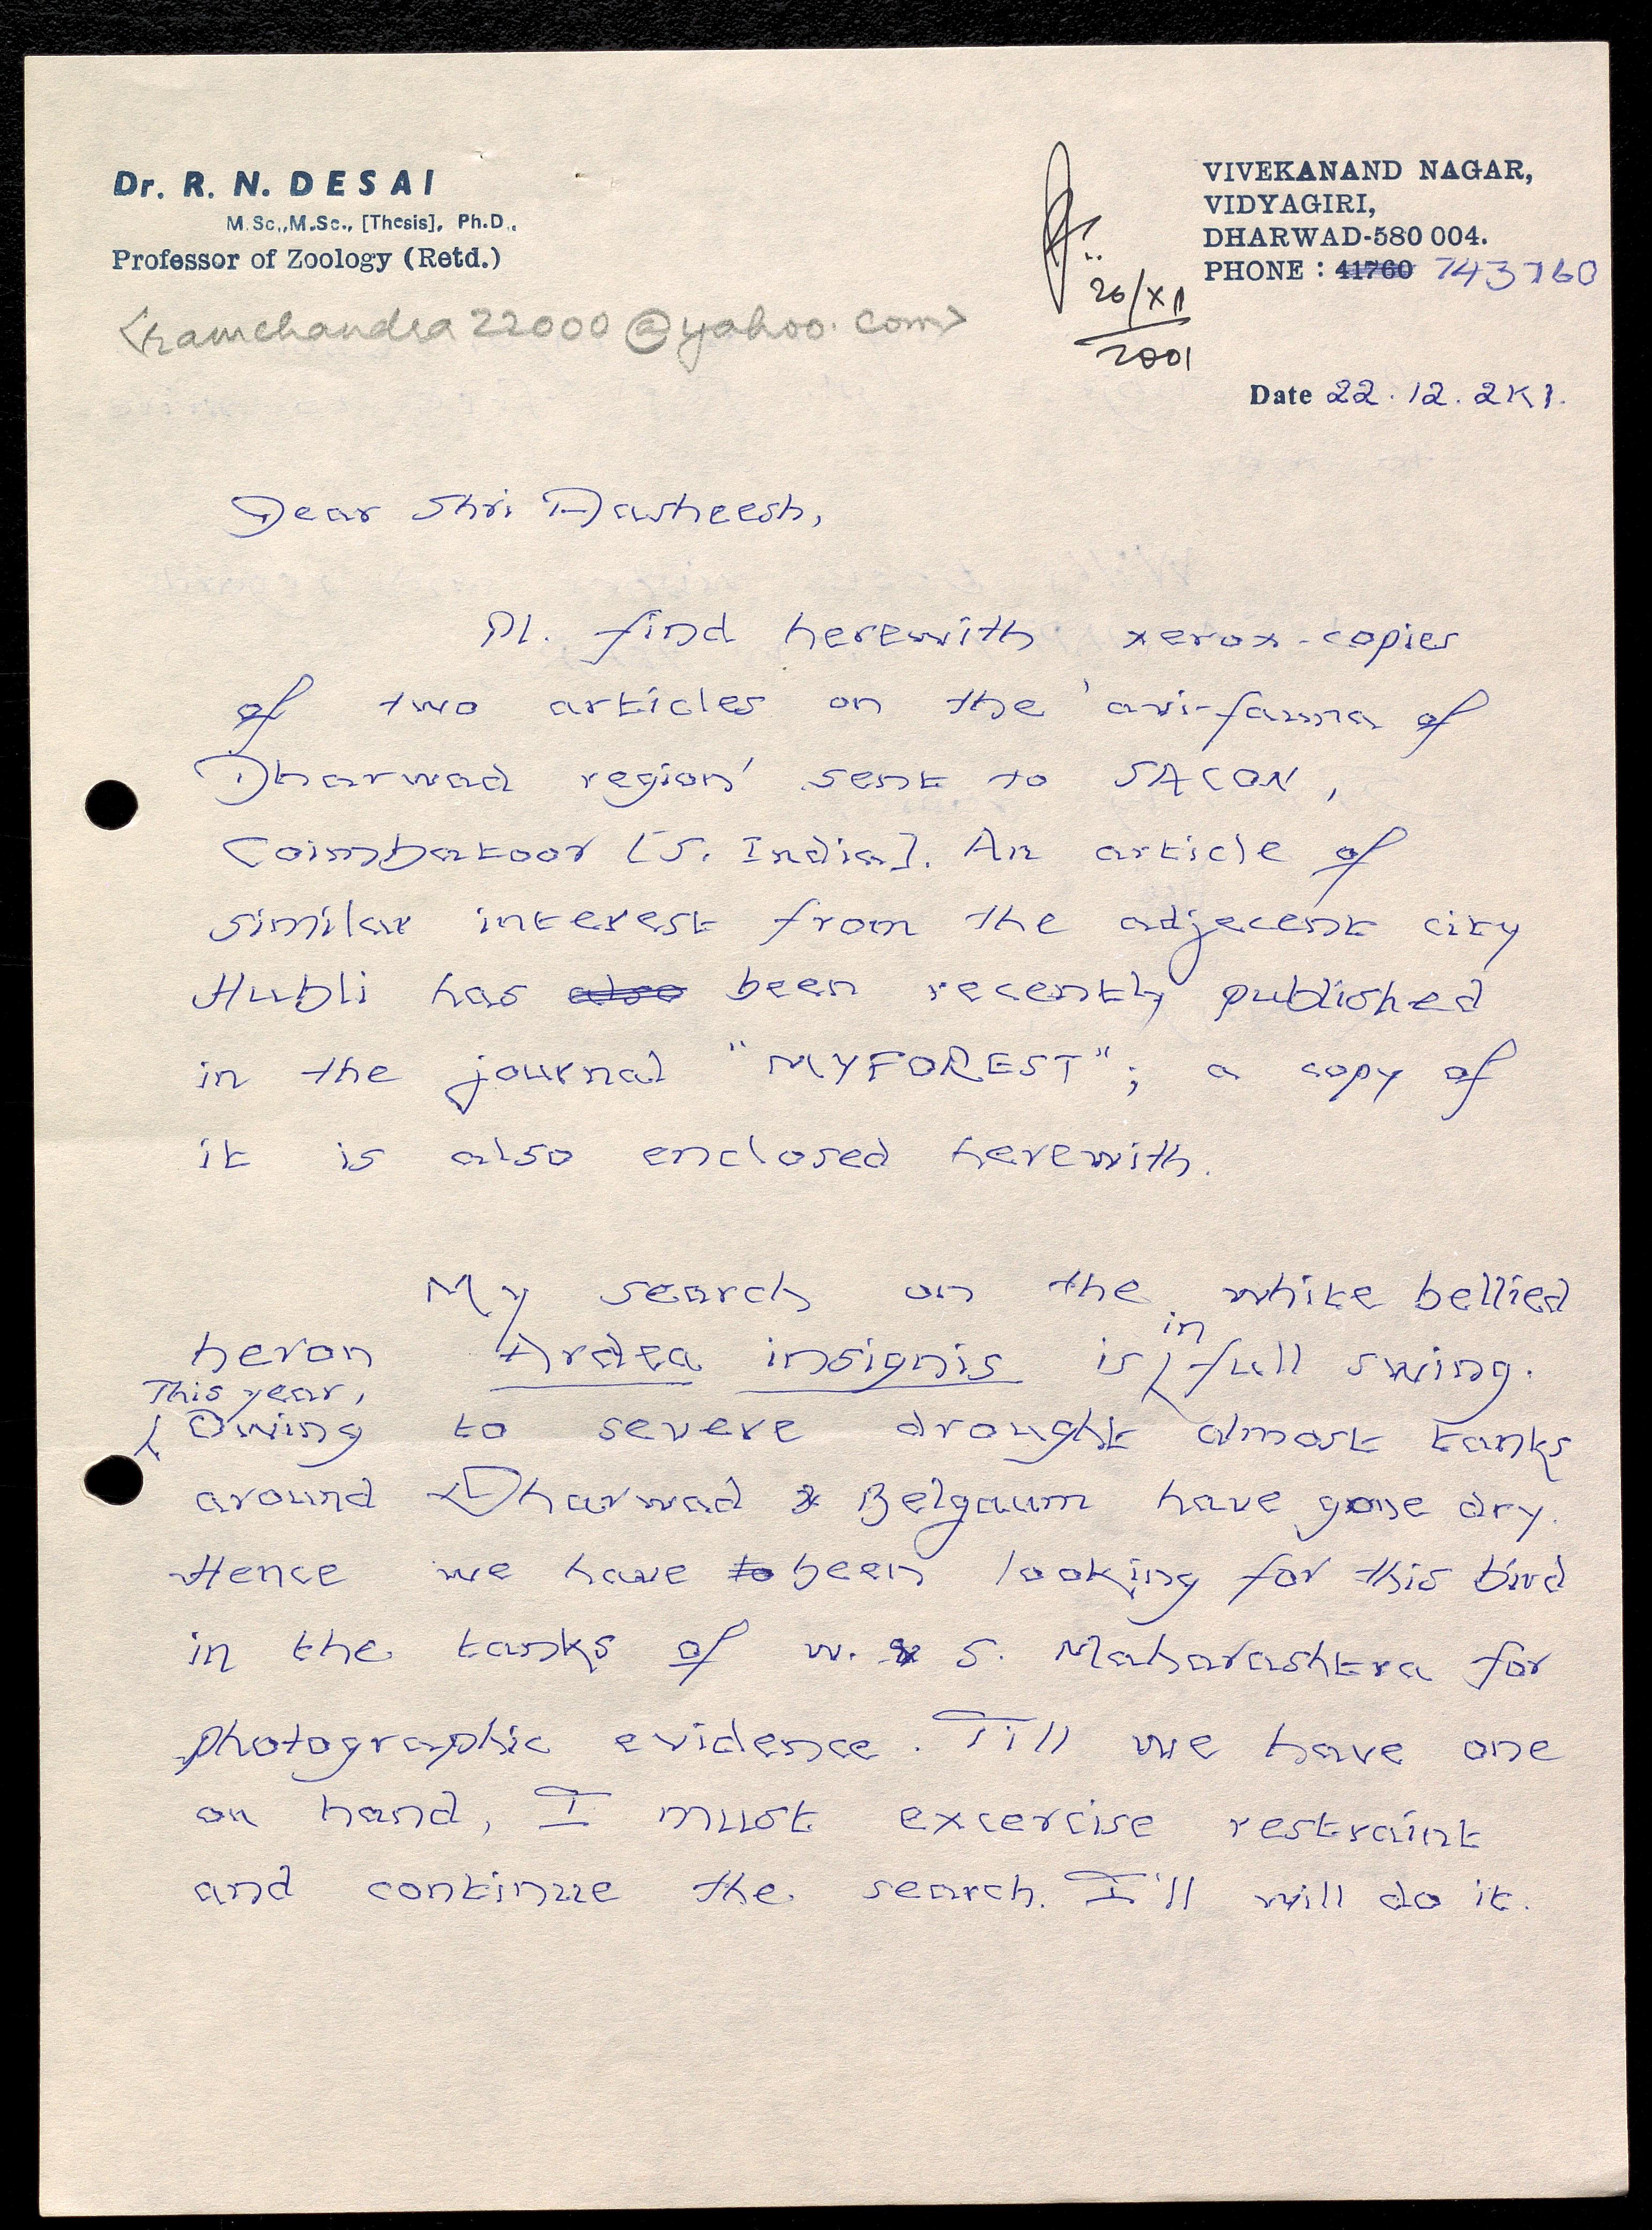 Dr. R. N. DESAI
M.Sc.,M.Sc., [Thesis], Ph.D.,
Professor of Zoology (Retd.)
<ramchandra22000@yahoo.com>
VIVEKANAND NAGAR,
VIDYAGIRI,
DHARWAD-580 004.
PHONE : 41760 743760
26/XII
2001
Date 22.12.2K1.
Dear Shri Dasheesh,
Pl. find herewith xerox-copies
of two articles on the 'avi-fauna of
Dharwad region' sent to SACON,
Coimbatoor [S. India]. An article of
similar interest from the adjecent city
Hubli has also been recently published
in the journal "MYFOREST"; a copy of
it is also enclosed herewith.
My search on the white bellied
heron Ardea insignis is in full swing.
This year,
Owing to severe drought almost tanks
around Dharwad & Belgaum have gone dry.
Hence we have to been looking for this bird
in the tanks of W. & S. Maharashtra for
photographic evidence. Till we have one
on hand, I must excercise restraint
and continue the search. I'll will do it.